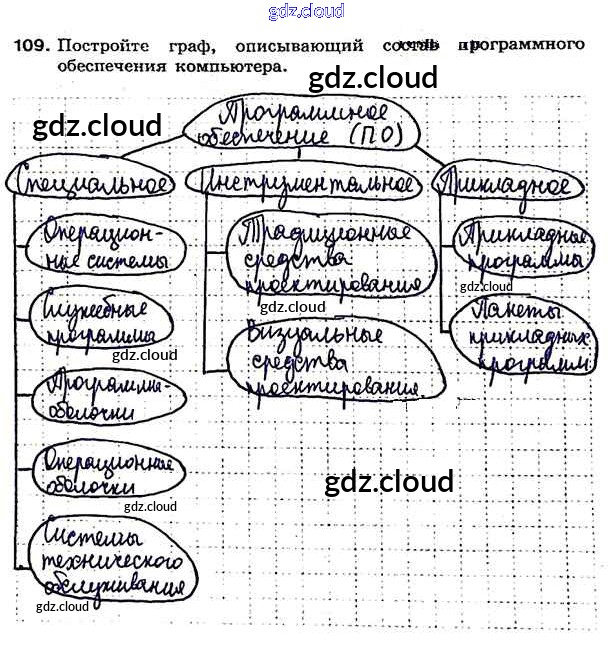 gdz.cloud
109. Постройте граф, описывающий состав программного
обеспечения компьютера.
gdz.cloud
gdz.cloud
Программное
обеспечение (ПО)
Специальное
Инструментальное
Прикладное
Операцион-
ные системы
Служебные
программы
gdz.cloud
Программы-
оболочки
Операционные
оболочки
gdz.cloud
Системы
технического
обслуживания
gdz.cloud
Традиционные
средства
проектирования
gdz.cloud
Визуальные
средства
проектирования.
Прикладные
программы
gdz.cloud
Пакеты
прикладных
программ
gdz.cloud
gdz.cloud